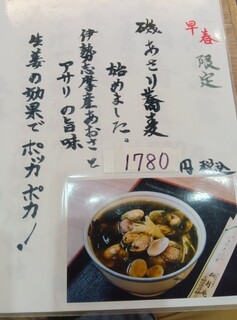 早春限定
磯あさり蕎麦
始めました。
伊勢志摩産あおさと
アサリの旨味
生姜の効果でポッカポカ!
1780円税込